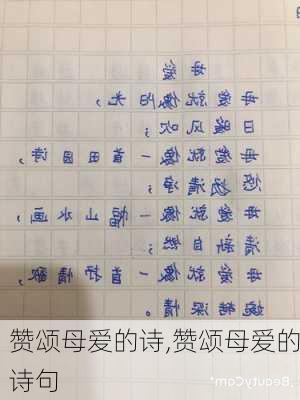 母爱
母爱就像阳光，
日暖风吹；
母爱就像一首田园诗，
悠远清净；
母爱就像一幅山水画，
清新自然；
母爱就像一首抒情歌，
婉转深情。
赞颂母爱的诗,赞颂母爱的
诗句
BeautyCam